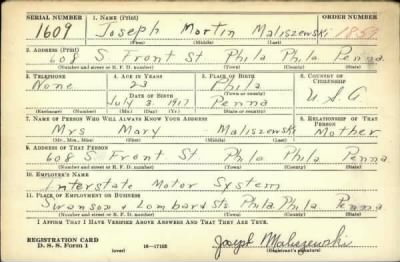 SERIAL NUMBER 1. NAME (Print) ORDER NUMBER
1609 Joseph Martin Maliszewski
(First) (Middle) (Last)
2. ADDRESS (Print)
608 S Front St Phila Phila Penna
(Number and street or R. F. D. number) (Town) (County) (State)
3. TELEPHONE 4. AGE IN YEARS 5. PLACE OF BIRTH 6. COUNTRY OF CITIZENSHIP
None 23 Phila
DATE OF BIRTH (Town or county)
July 3 1917 Penna U.S.A
(Exchange) (Number) (Mo.) (Day) (Yr.) (State or country)
7. NAME OF PERSON WHO WILL ALWAYS KNOW YOUR ADDRESS 8. RELATIONSHIP OF THAT PERSON
Mrs Mary Maliszewski Mother
(Mr., Mrs., Miss) (First) (Middle) (Last)
9. ADDRESS OF THAT PERSON
608 S. Front St Phila Phila Penna
(Number and street or R. F. D. number) (Town) (County) (State)
10. EMPLOYER'S NAME
Interstate Motor System
11. PLACE OF EMPLOYMENT OR BUSINESS
Swanson & Lombard Sts Phila Phila Penna
(Number and street or R. F. D. number) (Town) (County) (State)
I AFFIRM THAT I HAVE VERIFIED ABOVE ANSWERS AND THAT THEY ARE TRUE.
REGISTRATION CARD
D. S. S. Form 1 (over) 16-17105 Joseph Maliszewski
(Registrant's signature)